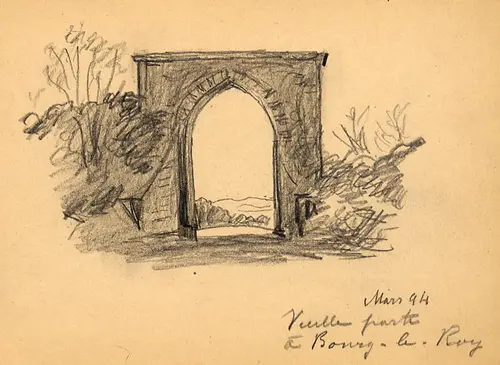 Mars 94
Vieille porte
à Bourg-le-Roy